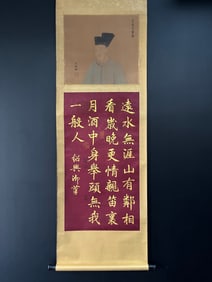 遠水無涯山有鄰相
看歲晚更情親笛裏
月酒中身舉頭無我
一般人
紹興御筆